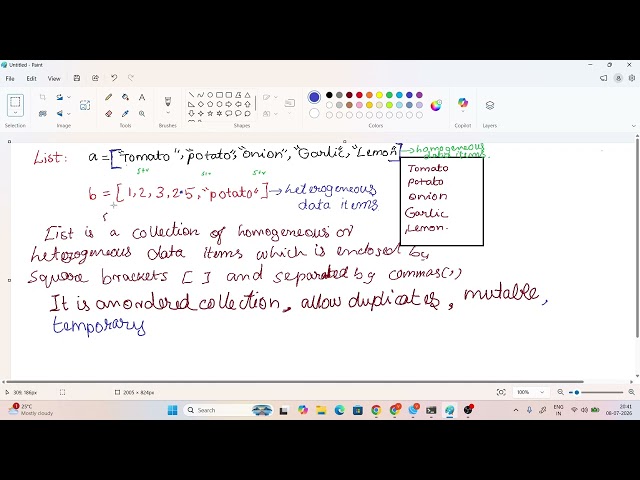 Untitled - Paint
File Edit View
Selection Image Tools Brushes Shapes Size Colors Copilot Layers
List: a = ["Tomato", "potato", "onion", "Garlic", "Lemon"] → homogeneous data items.
str str str
Tomato
Potato
onion
Garlic
Lemon.
b = [1, 2, 3, 2.5, "potato"] → heterogeneous data items
List is a collection of homogeneous or
heterogeneous data items which is enclosed by
square brackets [ ] and separated by commas(,)
It is an ordered collection, allow duplicates, mutable,
temporary
309, 186px 2005 × 824px 100%
25°C
Mostly cloudy
Search
ENG
IN
20:41
08-07-2026